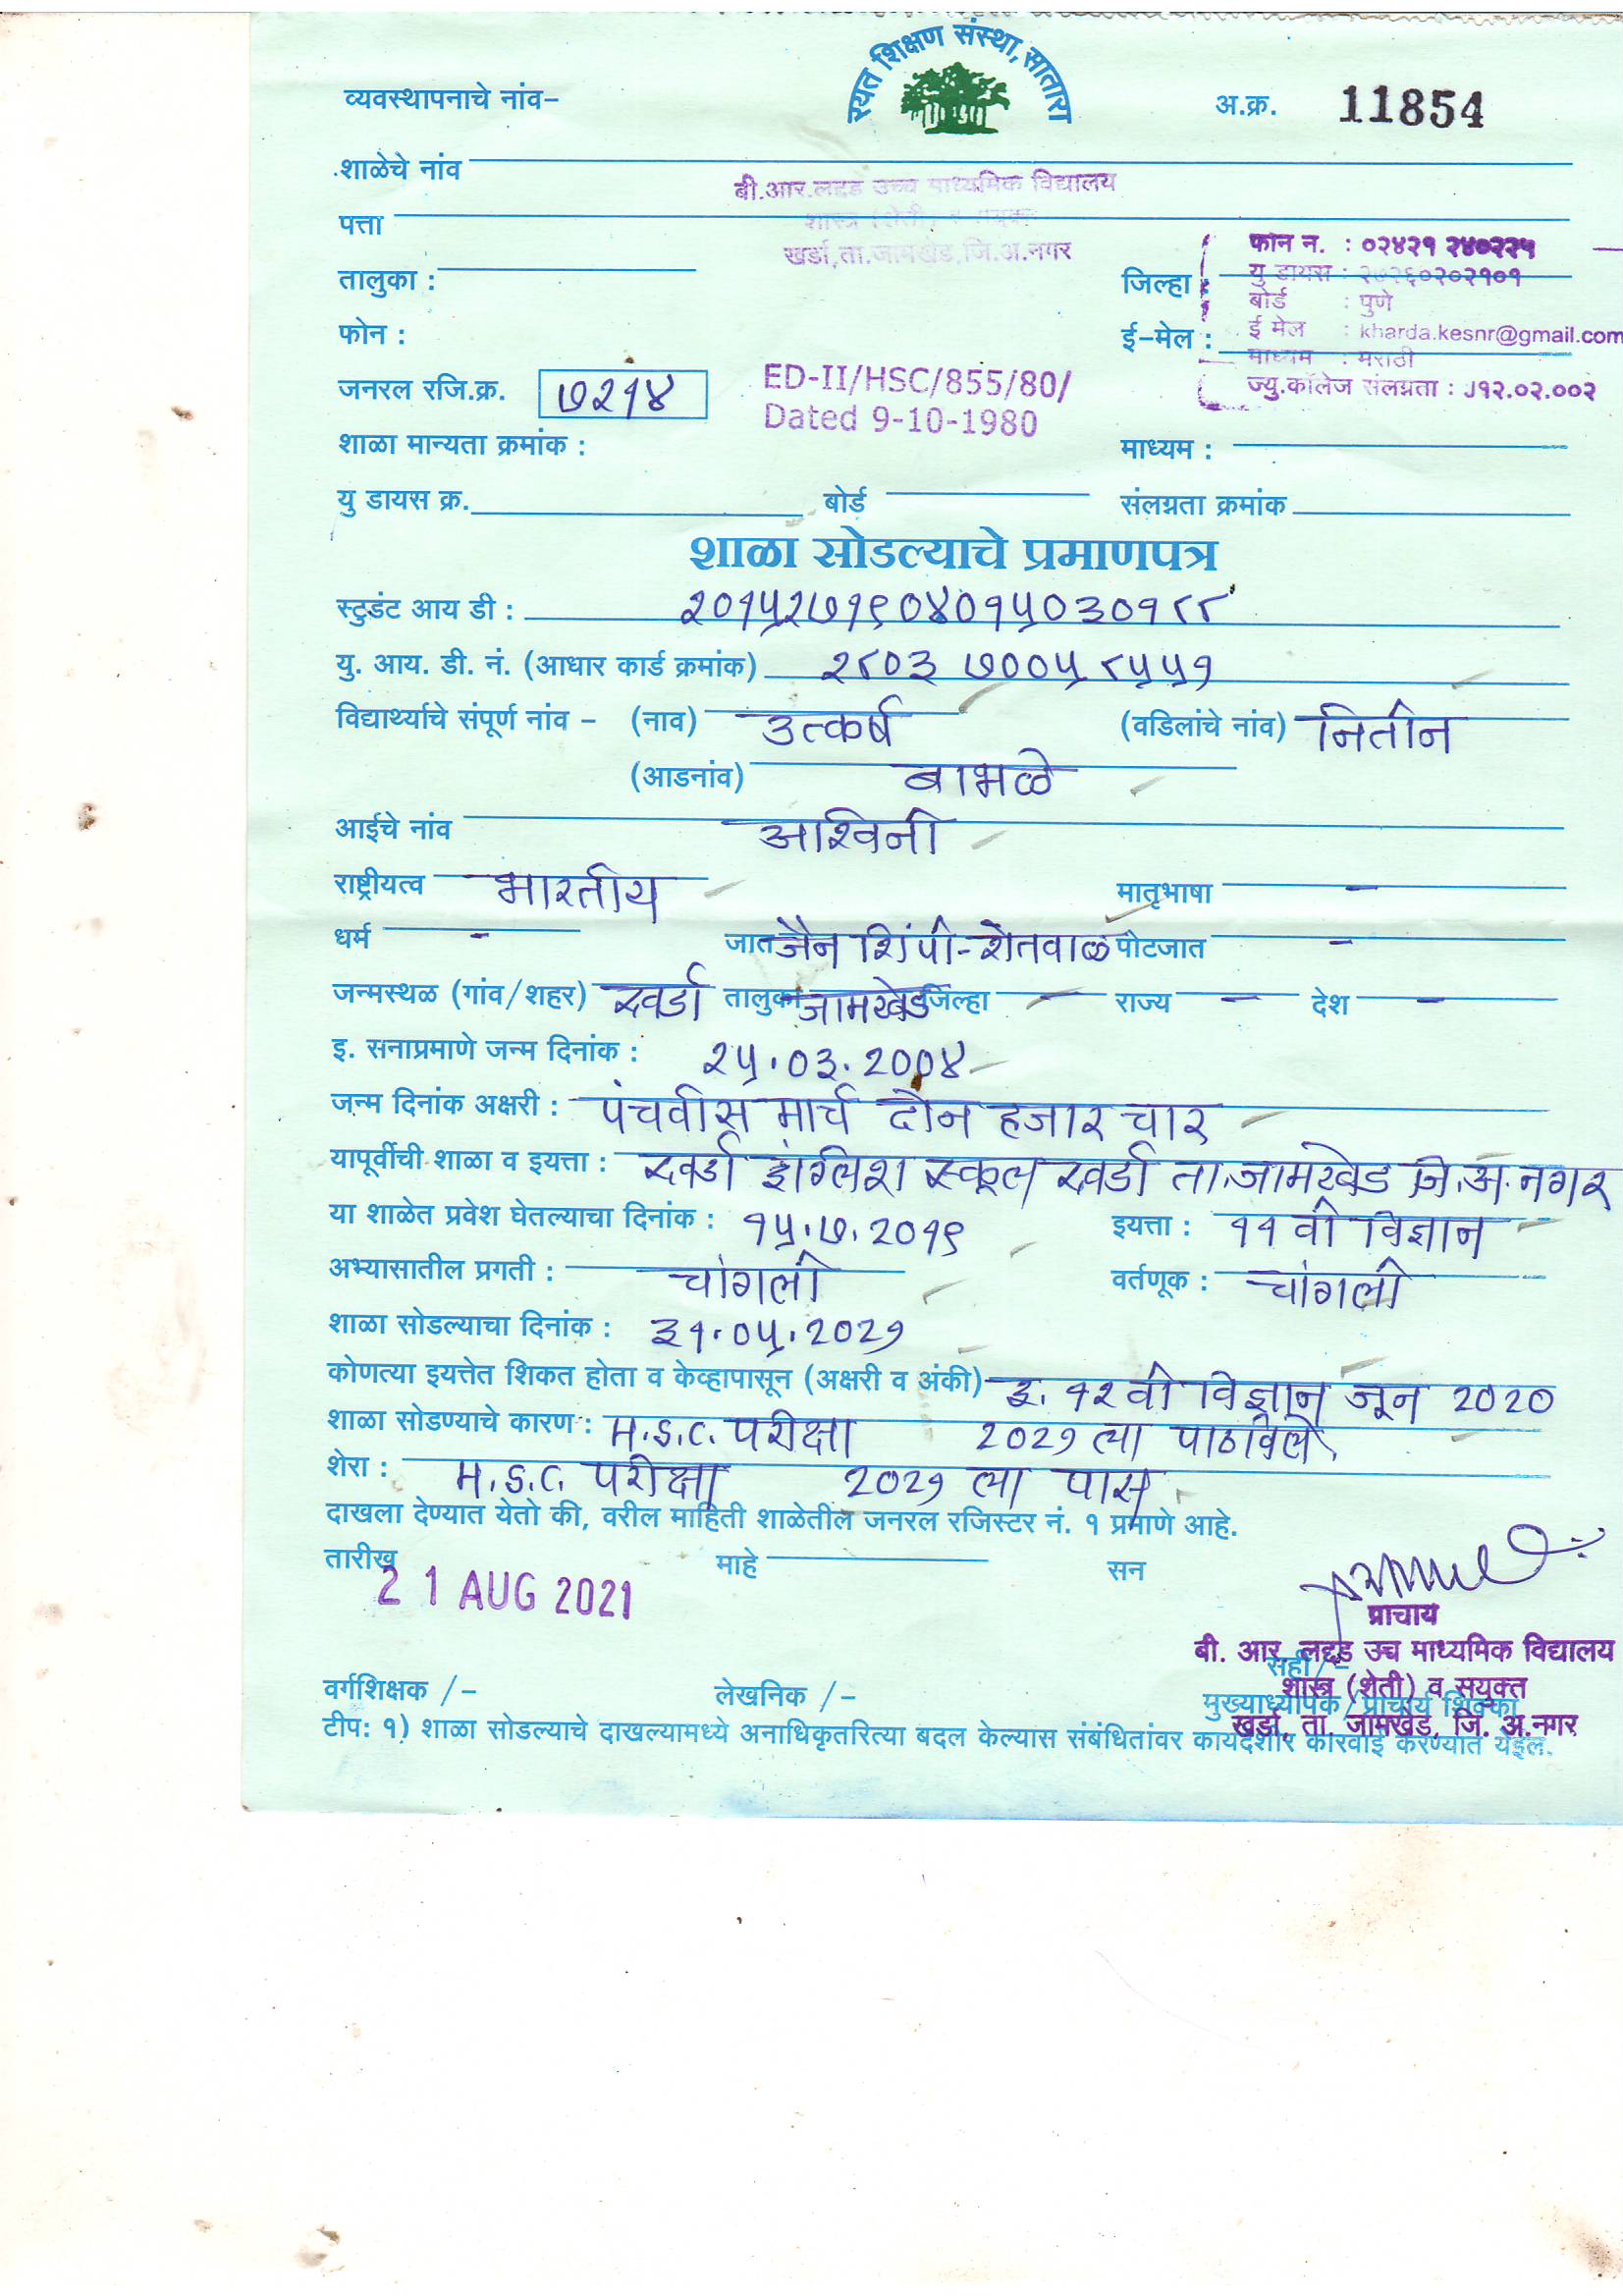 रयत शिक्षण संस्था, सातारा
व्यवस्थापनाचे नांव–
अ.क्र. 11854
शाळेचे नांव
बी.आर.लद्दड उच्च माध्यमिक विद्यालय
पत्ता
शास्त्र (शेती) व संयुक्त
खर्डा,ता.जामखेड,जि.अ.नगर
फोन न. : ०२४२१ २४०२२५
तालुका :
जिल्हा :
यु डायस : २७२६०२०२१०१
बोर्ड : पुणे
फोन :
ई-मेल :
ई मेल : kharda.kesnr@gmail.com
माध्यम : मराठी
जनरल रजि.क्र. ७२१४
ED-II/HSC/855/80/
Dated 9-10-1980
ज्यु.कॉलेज संलग्नता : J१२.०२.००२
शाळा मान्यता क्रमांक :
माध्यम :
यु डायस क्र. बोर्ड संलग्नता क्रमांक
शाळा सोडल्याचे प्रमाणपत्र
स्टुडंट आय डी : २०१५२७१९०४०१५०३०१८८
यु. आय. डी. नं. (आधार कार्ड क्रमांक) २८०३ ७००५ ८५५१
विद्यार्थ्याचे संपूर्ण नांव – (नाव) उत्कर्ष (वडिलांचे नांव) नितीन
(आडनांव) बाभळे
आईचे नांव आश्विनी
राष्ट्रीयत्व भारतीय मातृभाषा –
धर्म – जात जैन शिंपी-शेतवाळ पोटजात –
जन्मस्थळ (गांव/शहर) खर्डा तालुका जामखेड जिल्हा – राज्य – देश –
इ. सनाप्रमाणे जन्म दिनांक : २५.०३.२००४
जन्म दिनांक अक्षरी : पंचवीस मार्च दोन हजार चार
यापूर्वीची शाळा व इयत्ता : खर्डा इंग्लिश स्कूल खर्डा ता.जामखेड जि.अ.नगर
या शाळेत प्रवेश घेतल्याचा दिनांक : १५.७.२०१९ इयत्ता : ११ वी विज्ञान
अभ्यासातील प्रगती : चांगली वर्तणूक : चांगली
शाळा सोडल्याचा दिनांक : ३१.०५.२०२१
कोणत्या इयत्तेत शिकत होता व केव्हापासून (अक्षरी व अंकी) इ. १२ वी विज्ञान जून २०२०
शाळा सोडण्याचे कारण : H.S.C. परीक्षा २०२१ ला पाठविले
शेरा : H.S.C. परीक्षा २०२१ ला पास
दाखला देण्यात येतो की, वरील माहिती शाळेतील जनरल रजिस्टर नं. १ प्रमाणे आहे.
तारीख माहे सन
21 AUG 2021
प्राचार्य
बी. आर. लद्दड उच्च माध्यमिक विद्यालय
सही/–
शास्त्र (शेती) व संयुक्त
वर्गशिक्षक /– लेखनिक /– मुख्याध्यापक/प्राचार्य शिक्का
खर्डा, ता. जामखेड, जि. अ.नगर
टीप: १) शाळा सोडल्याचे दाखल्यामध्ये अनाधिकृतरित्या बदल केल्यास संबंधितांवर कायदेशीर कारवाई करण्यात येईल.